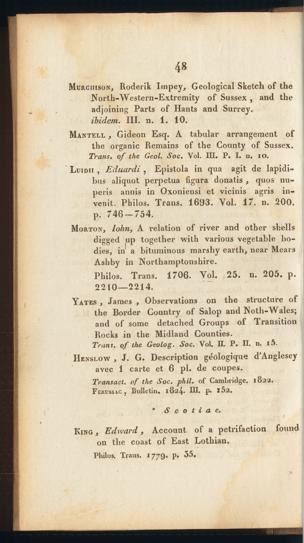 48
MURCHISON, Roderik Impey, Geological Sketch of the
North-Western-Extremity of Sussex, and the
adjoining Parts of Hants and Surrey.
ibidem. III. n. 1. 10.
MANTELL, Gideon Esq. A tabular arrangement of
the organic Remains of the County of Sussex.
Trans. of the Geol. Soc. Vol. III. P. I. n. 10.
LUIDII, Eduardi, Epistola in qua agit de lapidi-
bus aliquot perpetua figura donatis, quos nu-
peris annis in Oxoniensi et vicinis agris in-
venit. Philos. Trans. 1693. Vol. 17. n. 200.
p. 746—754.
MORTON, Iohn, A relation of river and other shells
digged up together with various vegetable bo-
dies, in a bituminous marshy earth, near Mears
Ashby in Northamptonshire.
Philos. Trans. 1706. Vol. 25. n. 205. p.
2210—2214.
YATES, James, Observations on the structure of
the Border Country of Salop and Noth-Wales;
and of some detached Groups of Transition
Rocks in the Midland Counties.
Trans. of the Geolog. Soc. Vol. II. P. II. n. 15.
HENSLOW, J. G. Description géologique d'Anglesey
avec 1 carte et 6 pl. de coupes.
Transact. of the Soc. phil. of Cambridge. 1822.
FERUSSAC, Bulletin. 1824. III. p. 152.
* Scotiae.
KING, Edward, Account of a petrifaction found
on the coast of East Lothian.
Philos. Trans. 1779. p. 35.